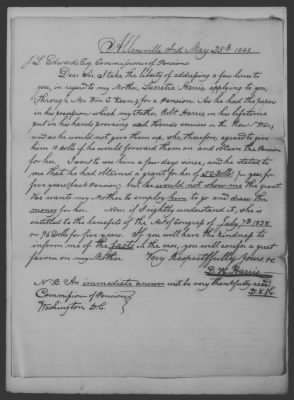 Allenville Ind May 25th
J L Edwards Esq Commissioner of Pensions
Dear Sir. I take the liberty of addressing a few lines to
you, in regard to my Mother, Lucretia Harris applying to you,
through Mr Wm C Keen, for a Pension. As he had the papers
in his possession which my Father, Robt Harris, in his lifetime
put in his hands proving said Harris services in the Rev War,
and as he would not give them up, she therefore agreed to give
him 10 dolls if he would forward them on and obtain the Pension
for her. I went to see him a few days since, and he stated to
me that he had obtained a grant for her of 50 Dolls pr year for
five years (back Pension) but he would not show me the grant.
He wants my Mother to employ him to go and draw the
money for her. Now if I rightly understand it, she is
entitled to the benefits of the act of Congress of July 7th 1838
or 96 Dolls for five years. If you will have the kindness to
inform me of the facts in the case, you will confer a great
favour on my Mother. Very Respectfully yours &c
D. K. Harris
N.B. An immediate answer will be very thankfully recd
D.K.H.
Commission of Pensions
Washington D.C.